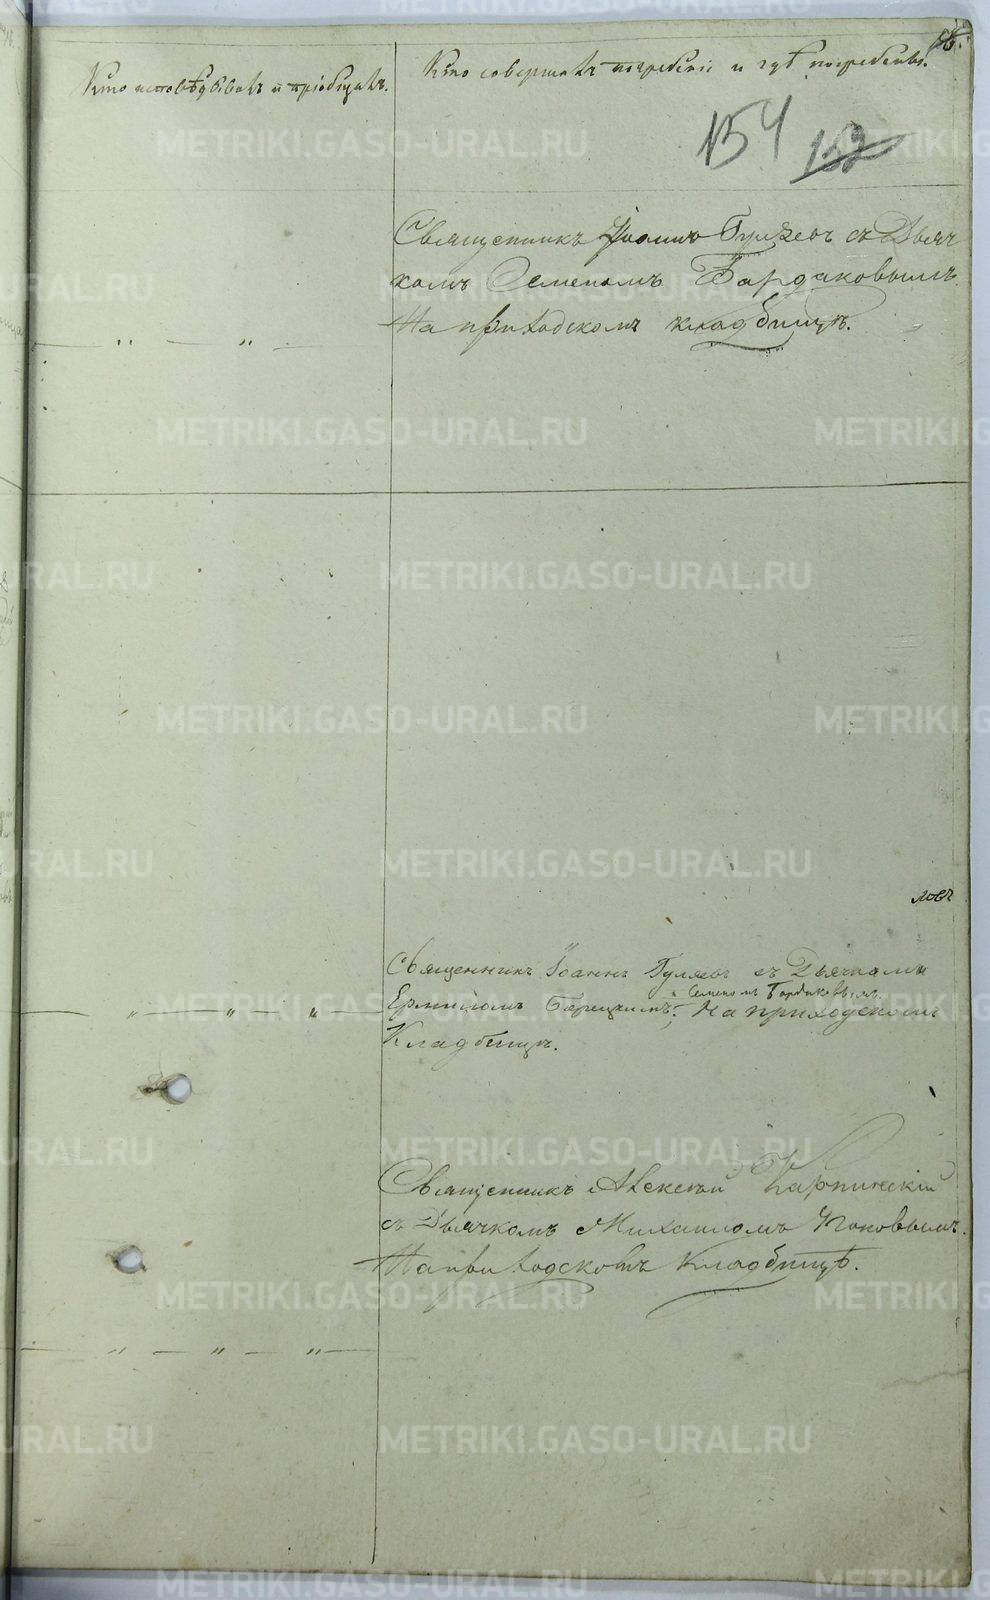 Кто исповѣдывалъ и пріобщалъ.
Кто совершалъ погребеніе и гдѣ погребены.
154 152
Священникъ Іоаннъ Гуляевъ съ Дьяч
комъ Семеномъ Бардаковымъ.
На приходскомъ кладбищѣ.
— „ — „ —
Священникъ Іоаннъ Гуляевъ съ Дьячками
и Семеномъ Бардаковымъ.
Ермиломъ На приходскомъ
— „ — „ — „ —
Кладбищѣ.
Священникъ Алексѣй Карпинскій
съ Дьячкомъ Михаиломъ Поповымъ.
На приходскомъ Кладбищѣ.
— „ — „ — „ —
METRIKI.GASO-URAL.RU